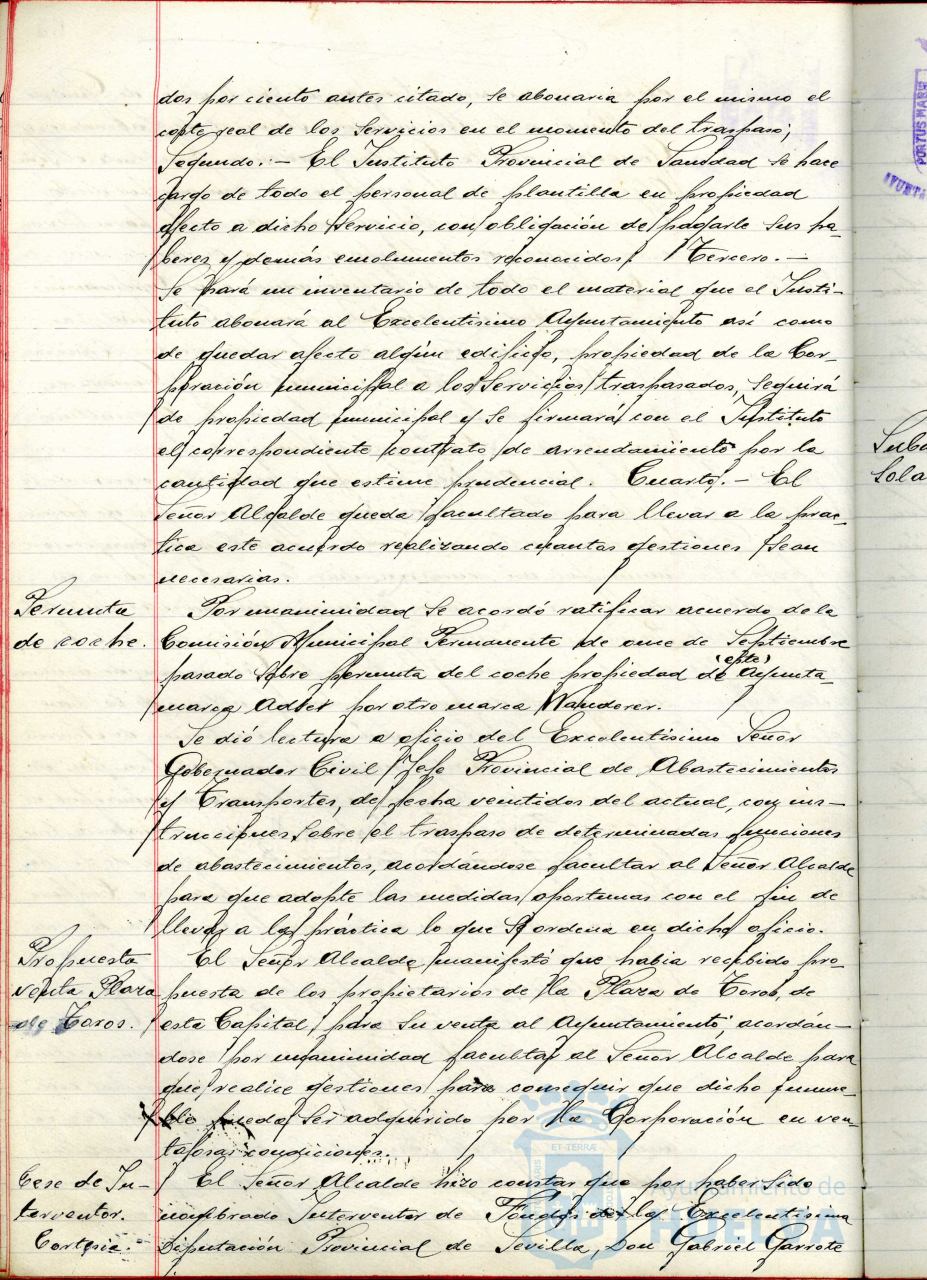 dos por ciento antes citado, se abonaria por el mismo el
coste real de los Servicios en el momento del traspaso;
Segundo.- El Instituto Provincial de Sanidad se hace
cargo de todo el personal de plantilla en propiedad
afecto a dicho Servicio, con obligación de pagarle sus ha-
beres y demás emolumentos reconocidos; Tercero.-
Se hará un inventario de todo el material que el Insti-
tuto abonará al Excelentísimo Ayuntamiento así como
de quedar afecto algún edificio, propiedad de la Cor-
poración municipal a los Servicios traspasados, seguirá
de propiedad municipal y se firmará con el Instituto
el correspondiente contrato de arrendamiento por la
cantidad que estime prudencial. Cuarto.- El
Señor Alcalde queda facultado para llevar a la prac-
tica este acuerdo realizando cuantas gestiones sean
necesarias.
Permuta
de coche.
Por unanimidad se acordó ratificar acuerdo de la
Comisión Municipal Permanente de once de Septiembre
pasado sobre permuta del coche propiedad de (este) Ayunta-
marca por otro marca Wanderer.
Se dió lectura a oficio del Excelentísimo Señor
Gobernador Civil Jefe Provincial de Abastecimientos
y Transportes, de fecha veintidos del actual, con ins-
trucciones sobre el traspaso de determinadas funciones
de abastecimientos, acordándose facultar al Señor Alcalde
para que adopte las medidas oportunas con el fin de
llevar a la práctica lo que se ordena en dicho oficio.
Propuesta
venta Plaza
de Toros.
El Señor Alcalde manifestó que habia recibido pro-
puesta de los propietarios de la Plaza de Toros, de
esta Capital, para su venta al Ayuntamiento, acordán-
dose por unanimidad facultar al Señor Alcalde para
que realice gestiones para conseguir que dicho inmue-
ble pueda ser adquirido por la Corporación en ven-
tajosas condiciones.
Cese de In-
terventor.
Cortesia.
El Señor Alcalde hizo constar que por haber sido
nombrado Interventor de Fondos de la Excelentísima
Diputación Provincial de Sevilla, Don Gabriel Garrote
Sola
PORTUS MARIS
ET TERRÆ
Ayuntamiento de
HUELVA